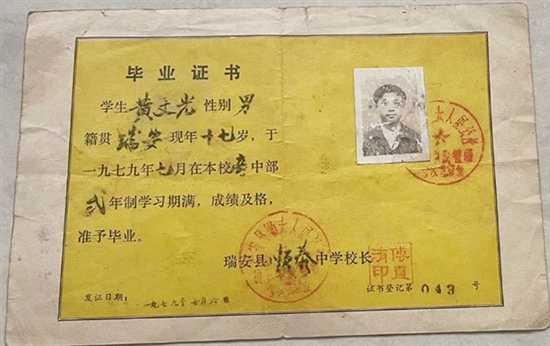 毕业证书
学生黄文光性别男
籍贯瑞安现年十七岁，于
一九七九年七月在本校高中部
弍年制学习期满，成绩及格，
准予毕业。
瑞安县 中学校长
傅直
清印
发证日期：一九七九年 月六日
证书登记第043号